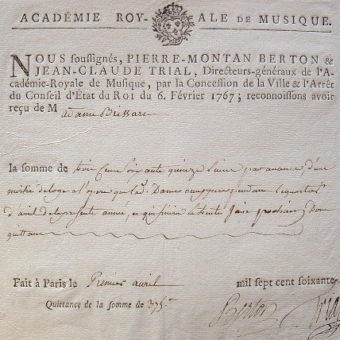 ACADÉMIE ROYALE DE MUSIQUE.
NOUS soussignés, PIERRE-MONTAN BERTON &
JEAN-CLAUDE TRIAL, Directeurs-généraux de l'Aca-
démie-Royale de Musique, par la Concession de la Ville & l'Arrêt
du Conseil d'État du ROI du 6. Février 1767; reconnoissons avoir
reçu de Madame Brissart
la somme de trois Cens soixante quinze Livres par avance d'une
moitié de loge a l'opera que lad. Dame occupe pendant le quartier
d'avril de la presente année, et qui finira le trente Juin prochain, Dont
quittance
Fait à Paris le Premier avril mil sept cent soixante-
Quittance de la somme de 375
Berton Trial